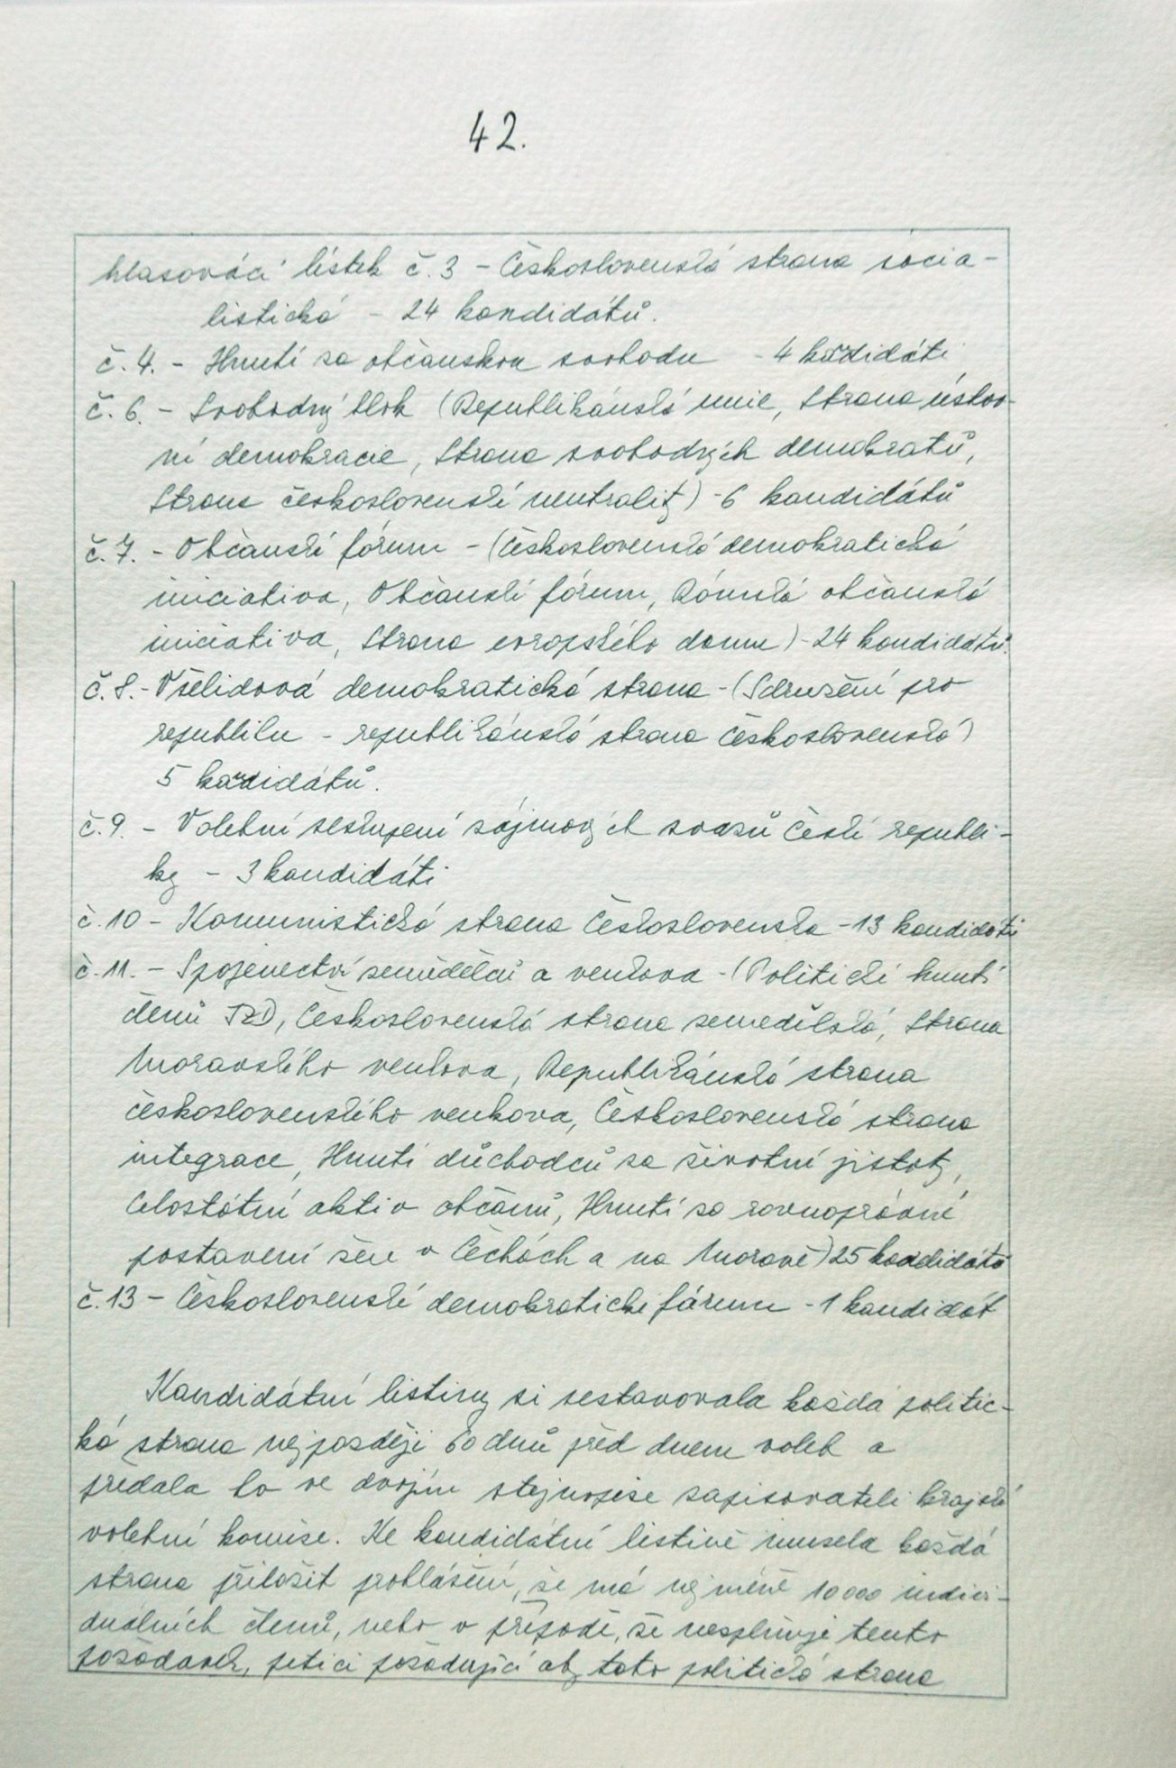 42.
hlasovací lístek č. 3 - Československá strana socia-
listická - 24 kandidátů.
č. 4. - Hnutí za občanskou svobodu - 4 kandidáti
č. 6. - Svobodný blok (Republikánská unie, Strana ústav-
ní demokracie, Strana svobodných demokratů,
Strana československé neutrality) - 6 kandidátů
č. 7. - Občanské fórum - (Československá demokratická
iniciativa, Občanské fórum, Rómská občanská
iniciativa, Strana evropského domu) - 24 kandidátů.
č. 8. - Všelidová demokratická strana - (Sdružení pro
republiku - republikánská strana Československa)
5 kandidátů.
č. 9. - Volební seskupení zájmových svazů České republi-
ky - 3 kandidáti
č. 10 - Komunistická strana Československa - 13 kandidátů
č. 11. - Spojenectví zemědělců a venkova - (Politické hnutí
členů JZD, Československá strana zemědělská, Strana
moravského venkova, Republikánská strana
československého venkova, Československá strana
integrace, Hnutí důchodců za životní jistoty,
Celostátní aktiv občanů, Hnutí za rovnoprávné
postavení žen v Čechách a na Moravě) 25 kandidátů
č. 13 - Československé demokratické fórum - 1 kandidát
Kandidátní listiny si sestavovala každá politic-
ká strana nejpozději 60 dnů před dnem voleb a
předala to ve dvojím stejnopise zapisovateli krajské
volební komise. Ke kandidátní listině musela každá
strana přiložit prohlášení, že má nejméně 10 000 indivi-
duálních členů, nebo v případě, že nesplňuje tento
požadavek, petici požadující aby tato politická strana